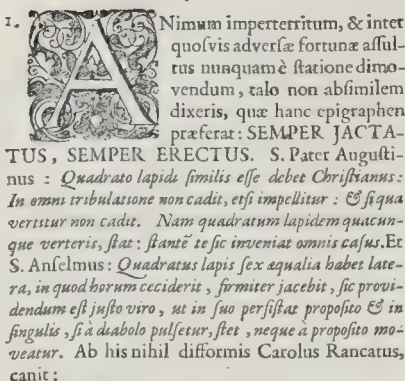 1. ANimum imperterritum, & inter
quoſvis adverſæ fortunæ aſſul-
tus nunquam è ſtatione dimo-
vendum, talo non abſimilem
dixeris, quæ hanc epigraphen
præferat: SEMPER JACTA-
TUS, SEMPER ERECTUS. S. Pater Auguſti-
nus : Quadrato lapidi ſimilis eſſe debet Chriſtianus:
In omni tribulatione non cadit, etſi impellitur : & ſi qua
vertitur non cadit. Nam quadratum lapidem quacun-
que verteris, ſtat: ſtantē te ſic inveniat omnis caſus. Et
S. Anſelmus: Quadratus lapis ſex æqualia habet late-
ra, in quod horum ceciderit, firmiter jacebit, ſic provi-
dendum eſt juſto viro, ut in ſuo perſiſtat propoſito & in
ſingulis, ſi à diabolo pulſetur, ſtet, neque à propoſito mo-
veatur. Ab his nihil difformis Carolus Rancatus,
canit :